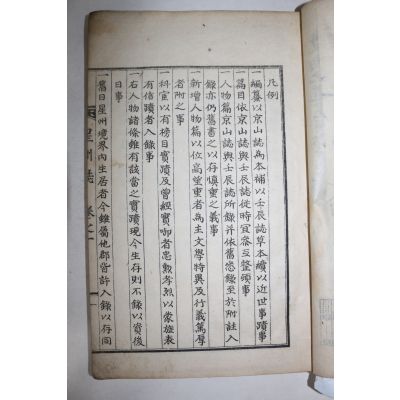 凡例
一編纂以京山誌為本補以壬辰誌草本續以近世事蹟事
一篇目依京山誌與壬辰誌從時宜叅互整頓事
一人物篇京山誌與壬辰誌所錄并依舊悉錄至於附註入
錄亦仍舊書之以存慎重之義事
一新增人物篇以位高望重者為主文學特異及行義篤厚
者附之事
一科宦以有榜目實蹟及曾經實啣者忠勲孝烈以蒙㫌表
有信蹟者入錄事
一右人物諸條雖有該當之實蹟現今生存則不錄以資後
日事
一舊日星州境界內生居者今雖屬他郡皆許入錄以存同
星州誌 卷之一